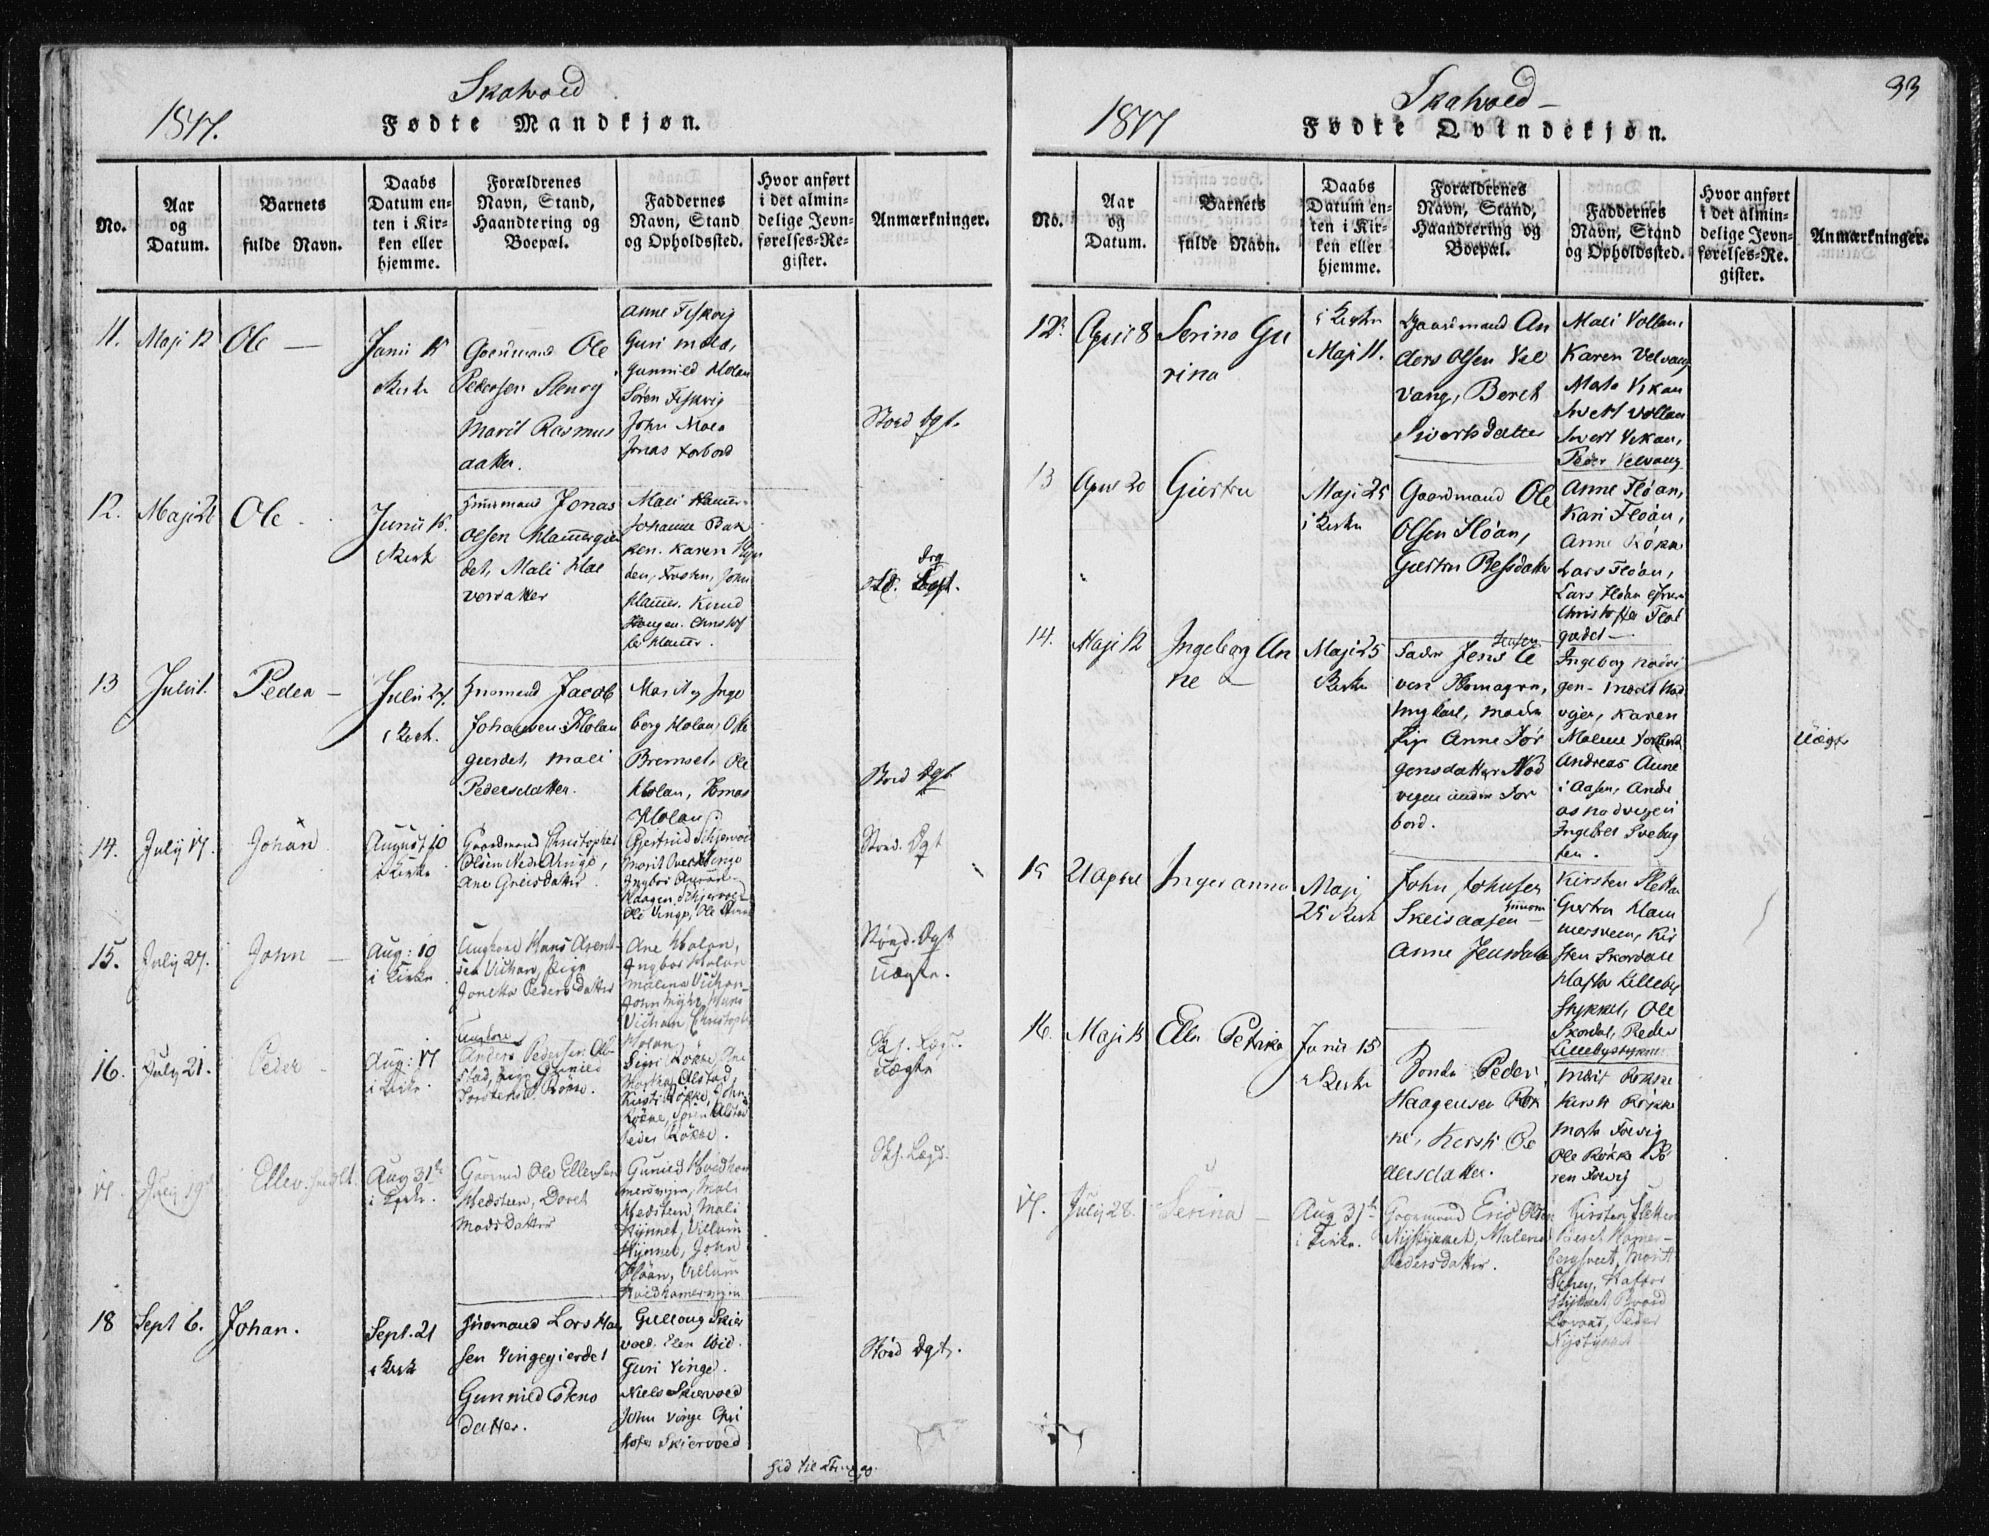 Skatvold
1817.
Fødte Mandkjøn.
No.
Aar
og
Datum.
Barnets
fulde Navn.
Daabs
Datum en-
ten i Kir-
ken eller
hjemme.
Forældrenes
Navn, Stand,
Haandtering og
Boepæl.
Faddernes
Navn, Stand
og Opholdssted.
Hvor anført
i det almin-
delige Jevn-
førelses-Re-
gister.
Anmærkninger.
11.
Maji 12
Ole
Junii 15
i Kirk
Gaardmand Ole
Pedersen
Marit Rasmus
datter.
Anne Fiskvig
Guri
Gunnild Holan
Søren Fiskvig
John
Jonas Forbord
Stord Lgt.
12.
Ole
Junii 15.
i Kirk
Jonas
Olsen
det, Mali Hal
vorsdatter
Mali Hamer
Johanne Bak
ken. Karen
den, Torsten, John
Hamer. Knud
13
Julii 1.
Peder
Julii 27.
i Kirk.
Husmand Jacob
Johansen Holan
gierdet, Mali
Pedersdatter.
Marit og Inge
borg Holan, Ole
Bremset, Ole
Holan, Tomas
Holan
Stord Lgt
14.
July 17.
Johan
August 10
i Kirke
Gaardmand Christopher
Olsen Nedre Vinge,
Ane Greisdatter.
Giertrud Skjervold
Marit Overvinge
Haagen Skjervold
Ole Vinge, Ole
Stord. Lgt
15.
July 27.
John
Aug: 10
i Kirke
Ungkarl Hans Arent-
sen Vichan, Pige
Jonetta Pedersdatter
Ane Holan,
Ingbor Holan
Malena Vichan
John Myhr, Hans
Vichan Christopher
Holan
Stord. Lgt
Uægte.
16.
July 21.
Peder
Aug: 17
i Kirke
Ungkarl
Anders Pedersen Al-
stad, Pige Gunnild
Torstensd. Røkke.
Sigri Røkke, Ane
Martha Alstad,
Kirsti Røkke, John
Røkke, Søren Alstad
Peder Røkke.
Skj. Lægd.
Uægte
17.
July 19de
Ellev
Aug 31te
i Kirke.
Gaarmd Ole Ellevsen
Hedsteen, Doret
Madsdatter
Gunild Hvidham
mersvign, Mali
Hedsteen, Mali
Hynnet, Villum
Hynnet, John
Fløan, Villum
Hvidhamersvign
Skj. Lægd.
18
Sept 6.
Johan.
Sept. 21
i Kirk
Husmand Lars Han
sen Vingegierdet
Gunnild Estens
datter.
Gullaug Skier
vold. Elen Wid.
Guri Vinge.
Niels Skiervold
John Vinge Chri
stofer Skiervold
Stord Lgt.
Skatvold
1817
Fødte Qvindekjøn.
33
No.
Aar
og
Datum.
Barnets
fulde Navn.
Daabs
Datum en-
ten i Kir-
ken eller
hjemme.
Forældrenes
Navn, Stand,
Haandtering og
Boepæl.
Faddernes
Navn, Stand
og Opholdssted.
Hvor anført
i det almin-
delige Jevn-
førelses-Re-
gister.
Anmærkninger.
12.
April 8
Serina Gu
rina
i Kirken
Maji 11.
Gaardmand An
ders Olsen Vel
vang, Beret
Sivertsdatter
Mali Vollan,
Karen Velvang
Marta Vikan
Sivert Vollan
Sivert Vikan,
Peder Velvang
13
April 20
Giertru
Maji 25
i Kirken
Gaardmand Ole
Olsen Fløan,
Giertru Besdatter
Anne Fløan,
Kari Fløan,
Anne Røkke
Lars Fløan,
Lars Fløan
Christoffer Fløe
gierdet
14.
Maji 12
Ingeborg An
ne
Maji 25
i Kirke
Fader Jens
ungkarl, Moder
Pige Anne Jør
gensdatter Nød
vigen under For
bord.
Ingeborg Nødvi
gen. Marit Nød
vigen, Karen
Malene Forbord
Andreas Aune
i Aasen, Andre
as Nødvigen
Uægte
15
21 April
Inger Anna
Maji
25 Kirk
John Johnsen
Husm
Skeisaasen
Anne Jensdatter
Kirsten Sletten
Giertru Ham
mersveen, Kir
sten Skordale
Hafter Lilleby
stykket, Ole
Skordal, Peder
Lillebystykket
16.
Maji 15
Ellen Petrika
Junii 15
i Kirke
Bonde Peder
Haagensen Røk
ke, Kersti Pe
dersdatter.
Marit Røkke
Kersti Røkke
Marta Forvig
Ole Røkke Sø
ren Forvig
17.
July 28.
Serina
Aug 31te
i Kirke.
Gaarmand Eric Olsen
Nystykket, Malena
Pedersdatter.
Kirsten Sletten
Beret Hamer-
bergsveet, Marit
Hafter
stykket, Baard
Peder
Nystykket